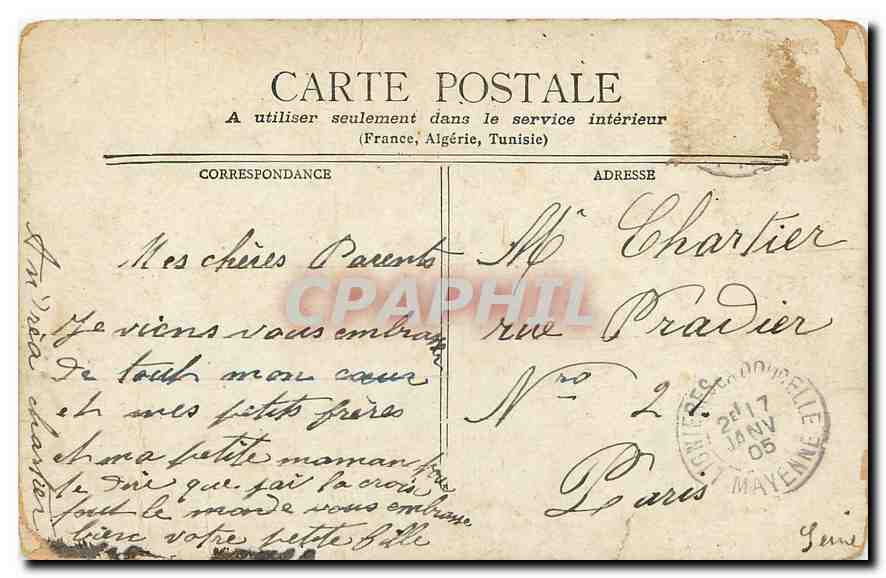 CARTE POSTALE
A utiliser seulement dans le service intérieur
(France, Algérie, Tunisie)
CORRESPONDANCE
Mes chères Parents
Je viens vous embrasser
de tout mon cœur
et mes petits frères
et ma petite maman pour
te dire que j'ai la croix
tout le monde vous embrasse
bien votre petite fille
Andréa chartier
ADRESSE
Mr Chartier
rue Pradier
Nro 21
Paris
Seine
CPAPHIL
LIGNIERES LA DOUCELLE
17
JANV
05
MAYENNE